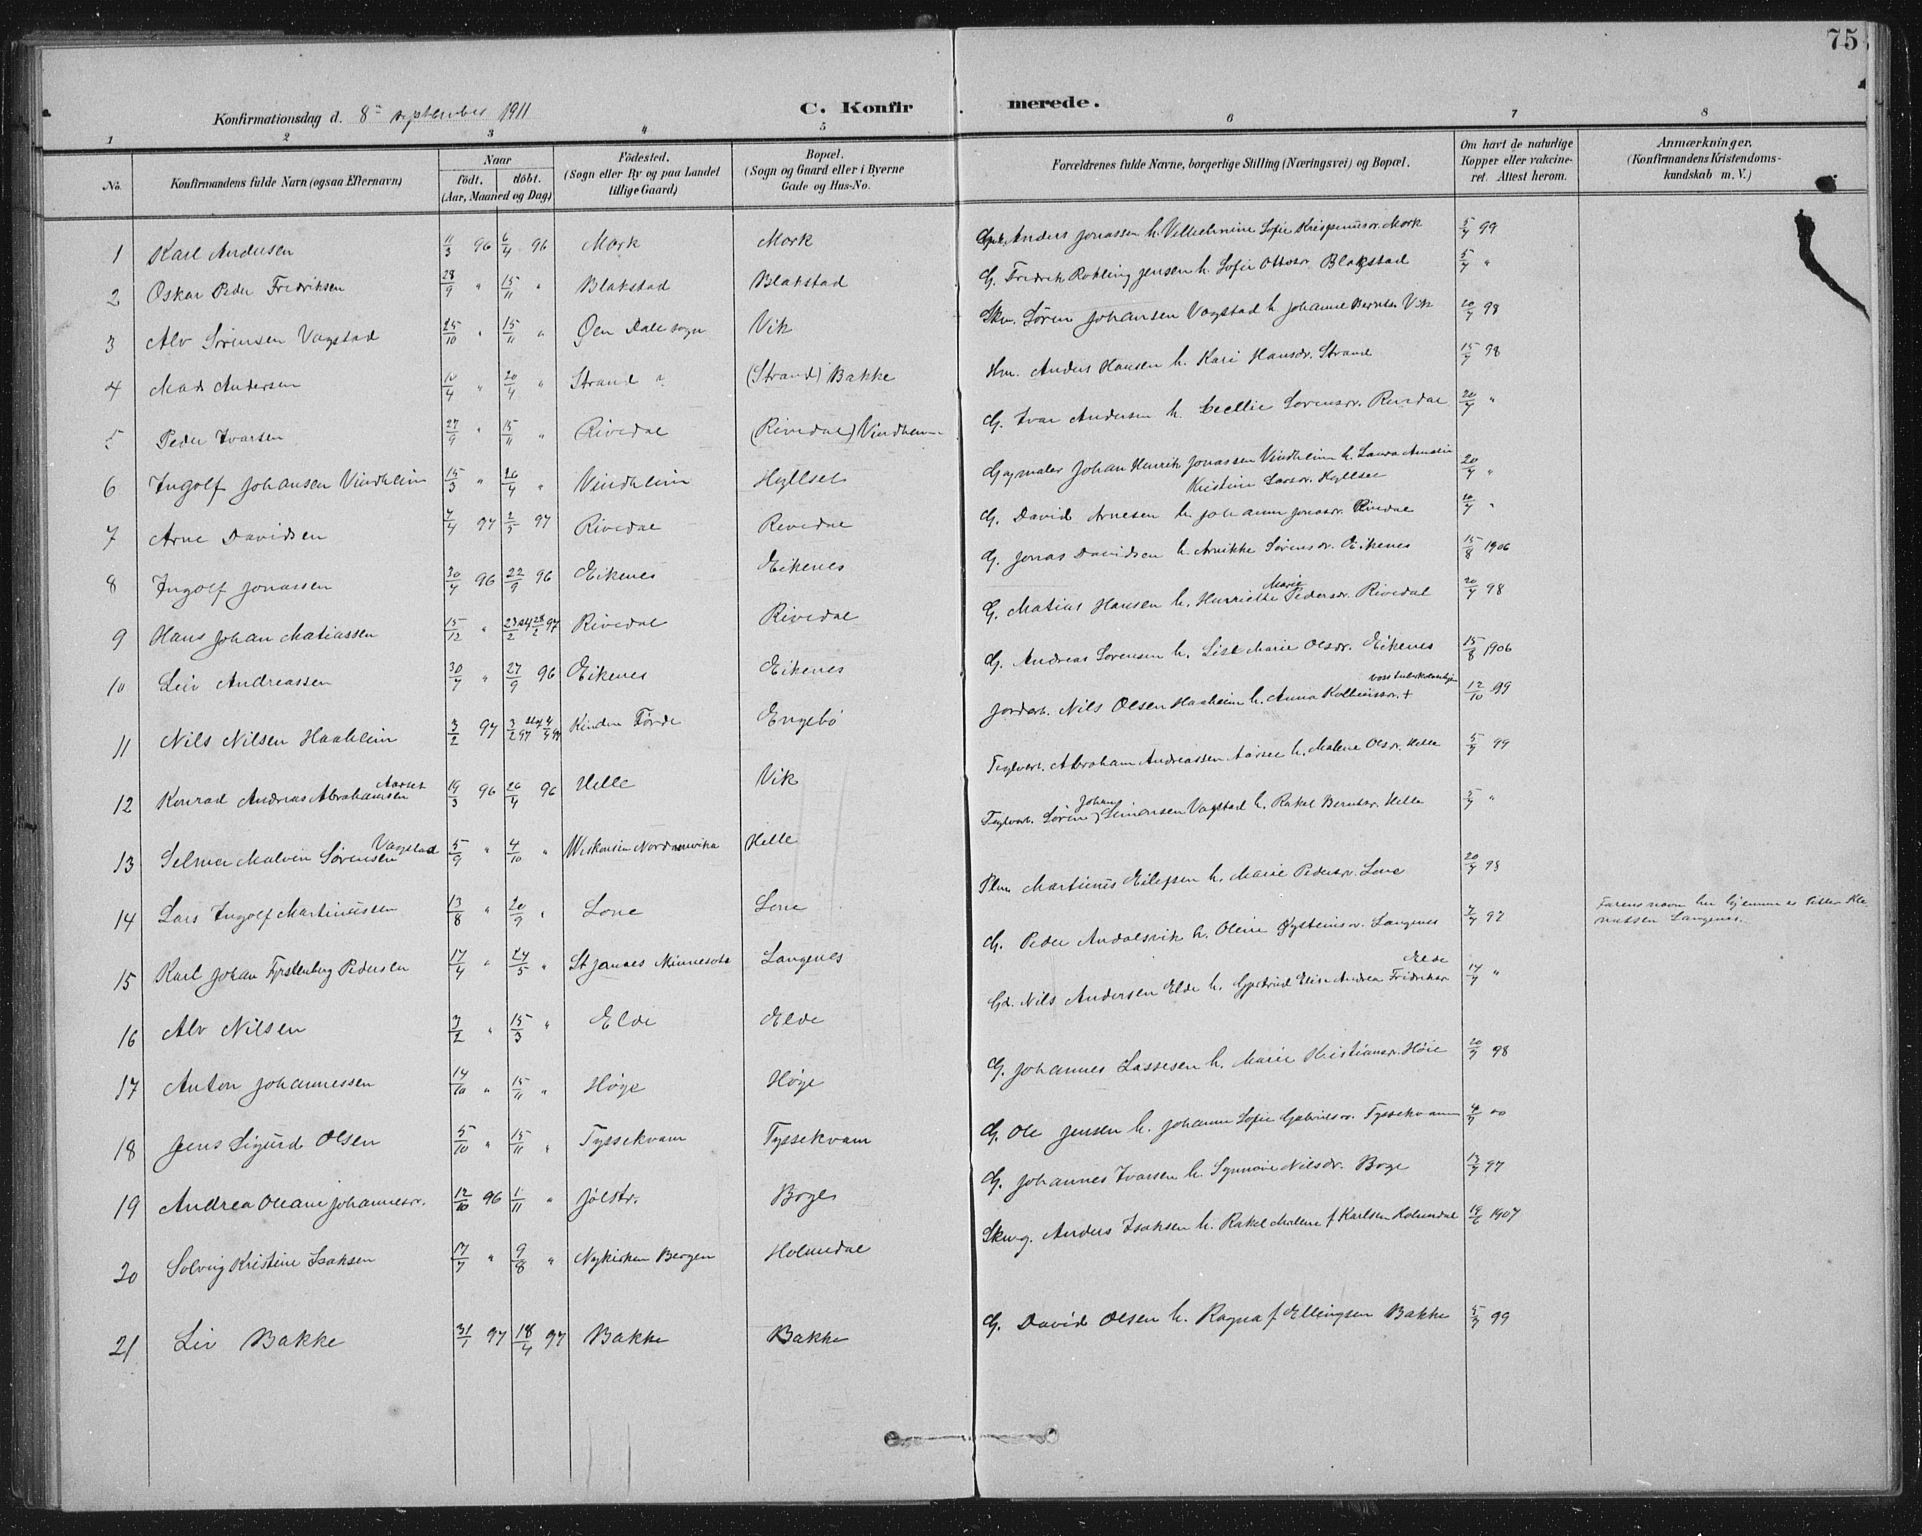 75
Konfirmationsdag d. 8de september 1911
C. Konfirmerede.
1 2 3 4 5 6 7 8
No. Konfirmandens fulde Navn (ogsaa Efternavn) Naar födt. döbt. (Aar, Maaned og Dag) Födested. (Sogn eller By og paa Landet tillige Gaard) Bopæl. (Sogn og Gaard eller i Byerne Gade og Hus-No. Forældrenes fulde Navne, borgerlige Stilling (Næringsvei) og Bopæl. Om havt de naturlige Kopper eller vaccineret. Attest herom. Anmærkninger. (Konfirmandens Kristendomskundskab m. V.)
1 Karl Andersen 11/3 96 6/4 96 Mork Mork Anders Jonassen h. Vilhelmine Sofie Mork 5/7 99
2 Oskar Peder Fredriksen 28/9 " 15/11 " Blakstad Blakstad G. Fredrik Jensen h. Sofie Ottosr. Blakstad 5/7 "
3 Alv Sørensen Vagstad 25/10 " 15/11 " Dale sogn Vik Søren Johansen Vagstad h. Johanne Vik 20/7 98
4 Mads Andersen 10/4 " 20/4 " Strand " (Strand) Bakke Hm. Anders Hansen h. Kari Hansdr. Strand 15/7 98
5 Peder Ivarsen 27/9 " 15/11 " Rivedal (Rivedal) Vindheim G. Ivar Andersen h. Sørensdr. Rivedal 20/7 "
6 Ingolf Johansen Vindheim 15/3 " 26/4 " Vindheim Hyllset Johan Henrik Jonassen Vindheim h. Laura Amalie Kristine Larsdr. Hyllset 20/7 "
7 Arne Davidsen 7/4 97 2/5 97 Rivedal Rivedal G. David Arnesen h. Johanne Jonasdr. Rivedal 20/7 "
8 Ingolf Jonassen 30/7 96 22/9 96 Eikenes Eikenes G. Jonas Davidsen h. Sørensdr. Eikenes 15/8 1906
9 Hans Johan Matiassen 15/12 " Rivedal Rivedal G. Matias Hansen h. Henriette Marie Pedersdr. Rivedal 20/7 98
10 Leiv Andreassen 30/7 " 27/9 96 Eikenes Eikenes G. Andreas Sørensen h. Lise Marie Olsdr. Eikenes 15/8 1906
11 Nils Nilsen Haaheim 3/2 97 Kinden Førde Engebø Jordarb. Nils Olsen Haaheim h. Anna + 12/10 99
12 Konrad Andreas Abrahamsen Aarset 19/3 96 26/4 96 Helle Vik Teglverk. Abraham Andreassen Aarset h. Malene Olsdr. Helle 5/7 99
13 Selmer Malvin Sørensen Vagstad 5/9 " 4/10 " Helle Søren Johan Simonsen Vagstad h. Rakel Berntsr. Helle 5/7 "
14 Lars Ingolf Martinussen 13/8 " 20/9 " Lone Lone Martinus h. Marie Pedersr. Lone 20/7 98
15 Karl Johan Fyrstenberg Pedersen 17/4 " 24/5 " St James Minnesota Langenes G. Peder Andalsvik h. Oline Langenes 97
16 Alv Nilsen 3/2 " 15/3 " Elde Elde Nils Andersen Elde h. Elise Andrea Elde 17/7 "
17 Anton Johannessen 14/10 " 15/11 " Høye Høye G. Johannes Lassesen h. Marie Kristiansr. Høie 20/7 98
18 Jens Sigurd Olsen 5/10 " 15/11 " Tyssekvam Tyssekvam G. Ole Jensen h. Johanne Sofie Gabrielsr. Tyssekvam
19 Andrea Oleane Johannesr. 12/10 96 1/11 " Jølstr. Borge G. Johannes Ivarsen h. Synnøve Nilsdr. Borge 97
20 Solveig Kristine Isaksen 17/7 " 9/8 " Nykirken Bergen Holmedal Anders Isaksen h. Rakel Malene f Karlsen Holmedal 19/6 1907
21 Liv Bakke 31/1 97 18/4 97 Bakke Bakke G. David Olsen h. Ragna f Ellingsen Bakke 5/7 99
Farens navn her hjemme
Langenes.